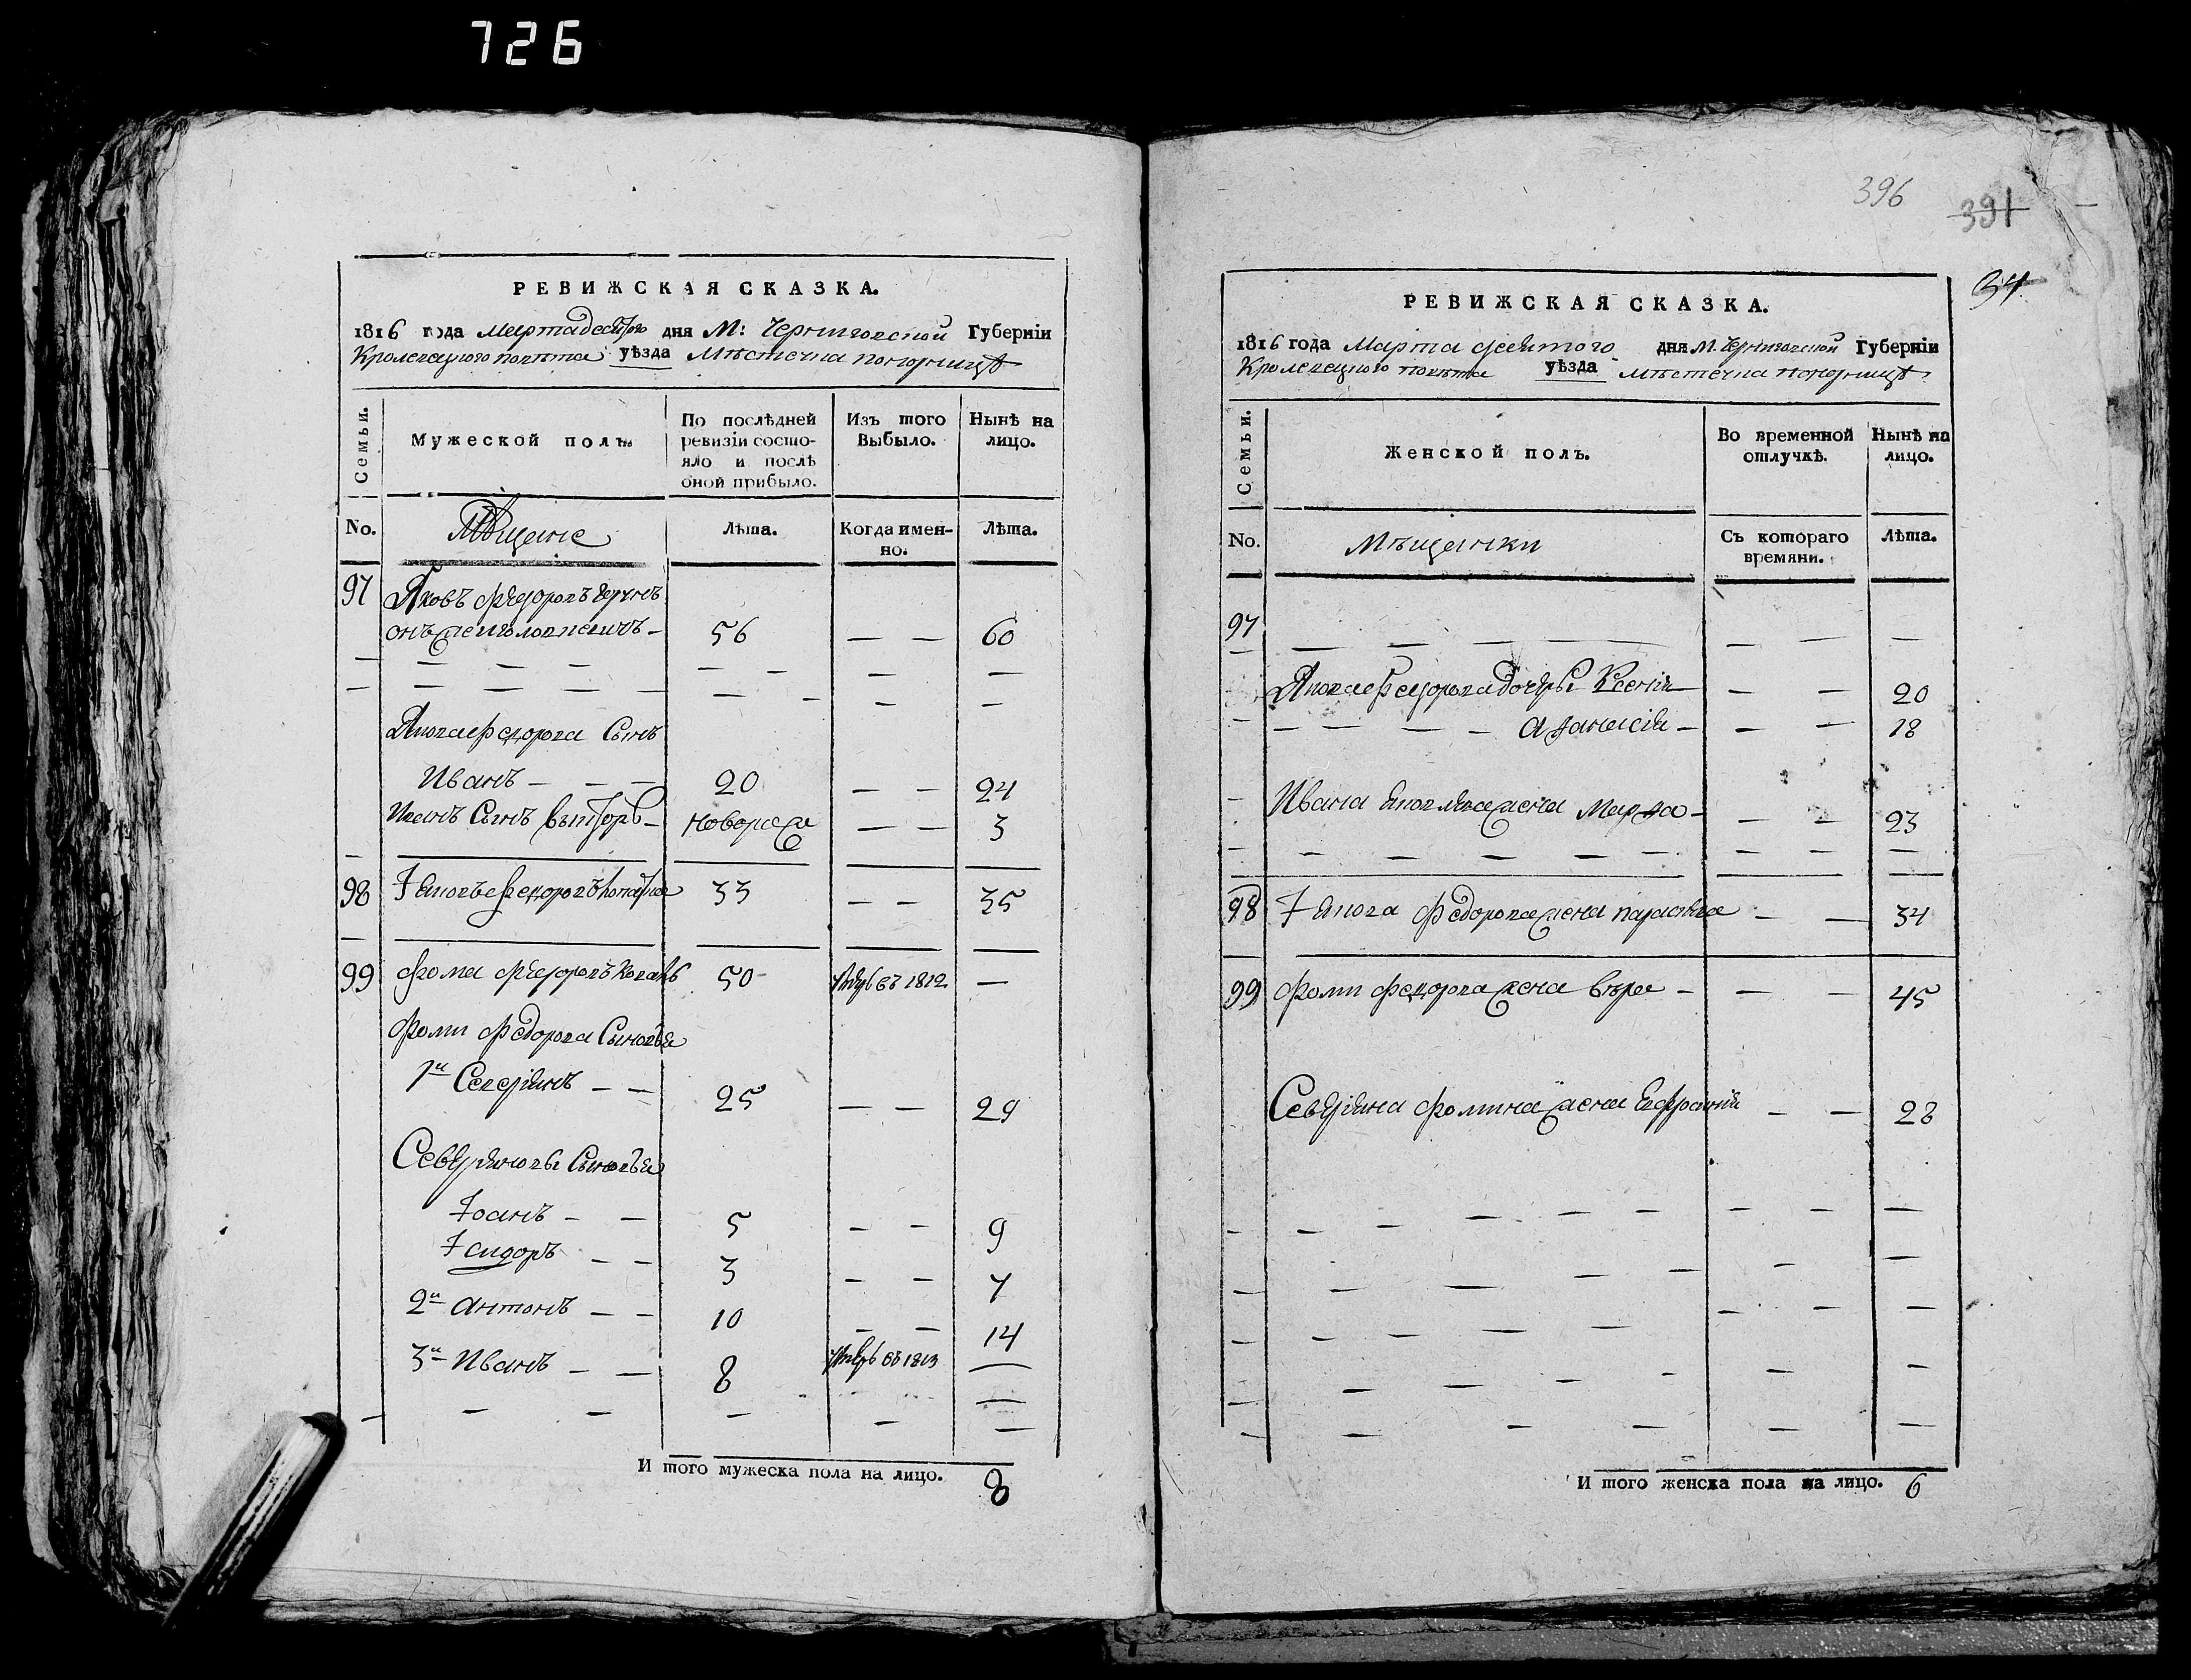 726
396
391
34
РЕВИЖСКАЯ СКАЗКА.
1816 года Марта десятого дня М: Черниговской Губерніи
Кролевецкого повѣта уѣзда Мѣстечка Понорницѣ
Семьи.
Мужеской полъ
По послѣдней ревизіи состояло и послѣ оной прибыло.
Изъ того Выбыло.
Нынѣ на лицо.
No.
Мѣщане
Лѣта.
Когда именно.
Лѣта.
97 Яковъ Федоровъ
56 — — 60
Якова Федорова Сынъ
Иванъ — — — 20 — — 24
Сынъ — — — 3
98 Іяковъ Федоровъ 33 — — 35
99 Фома Федоровъ 50 въ 1812 —
Фоми Федорова Сыновья
1й Северіянъ — — 25 — — 29
Северіяновы Сыновья
Іоанъ — — 5 — — 9
Ісидоръ — — 3 — — 7
2й Антонъ — — 10 — — 14
3й Иванъ — — 8 въ 1813 —
И того мужеска пола на лицо. 8
РЕВИЖСКАЯ СКАЗКА.
1816 года Марта десятого дня М. Черниговской Губерніи
Кролевецкого повѣта уѣзда Мѣстечка Понорницѣ
Семьи.
Женской полъ.
Во временной отлучкѣ.
Нынѣ на лицо.
No.
Мѣщанки
Съ котораго времяни.
Лѣта.
97
Якова Федорова дочеры Ксенія — — 20
Афанасія — — — 18
Ивана жена Марфа — — — 23
98 Іякова Федорова жена параскева — — 34
99 Фоми Федорова жена Вѣра — — — 45
Северіяна Фомина жена Ефросинія — — 28
И того женска пола на лицо. 6